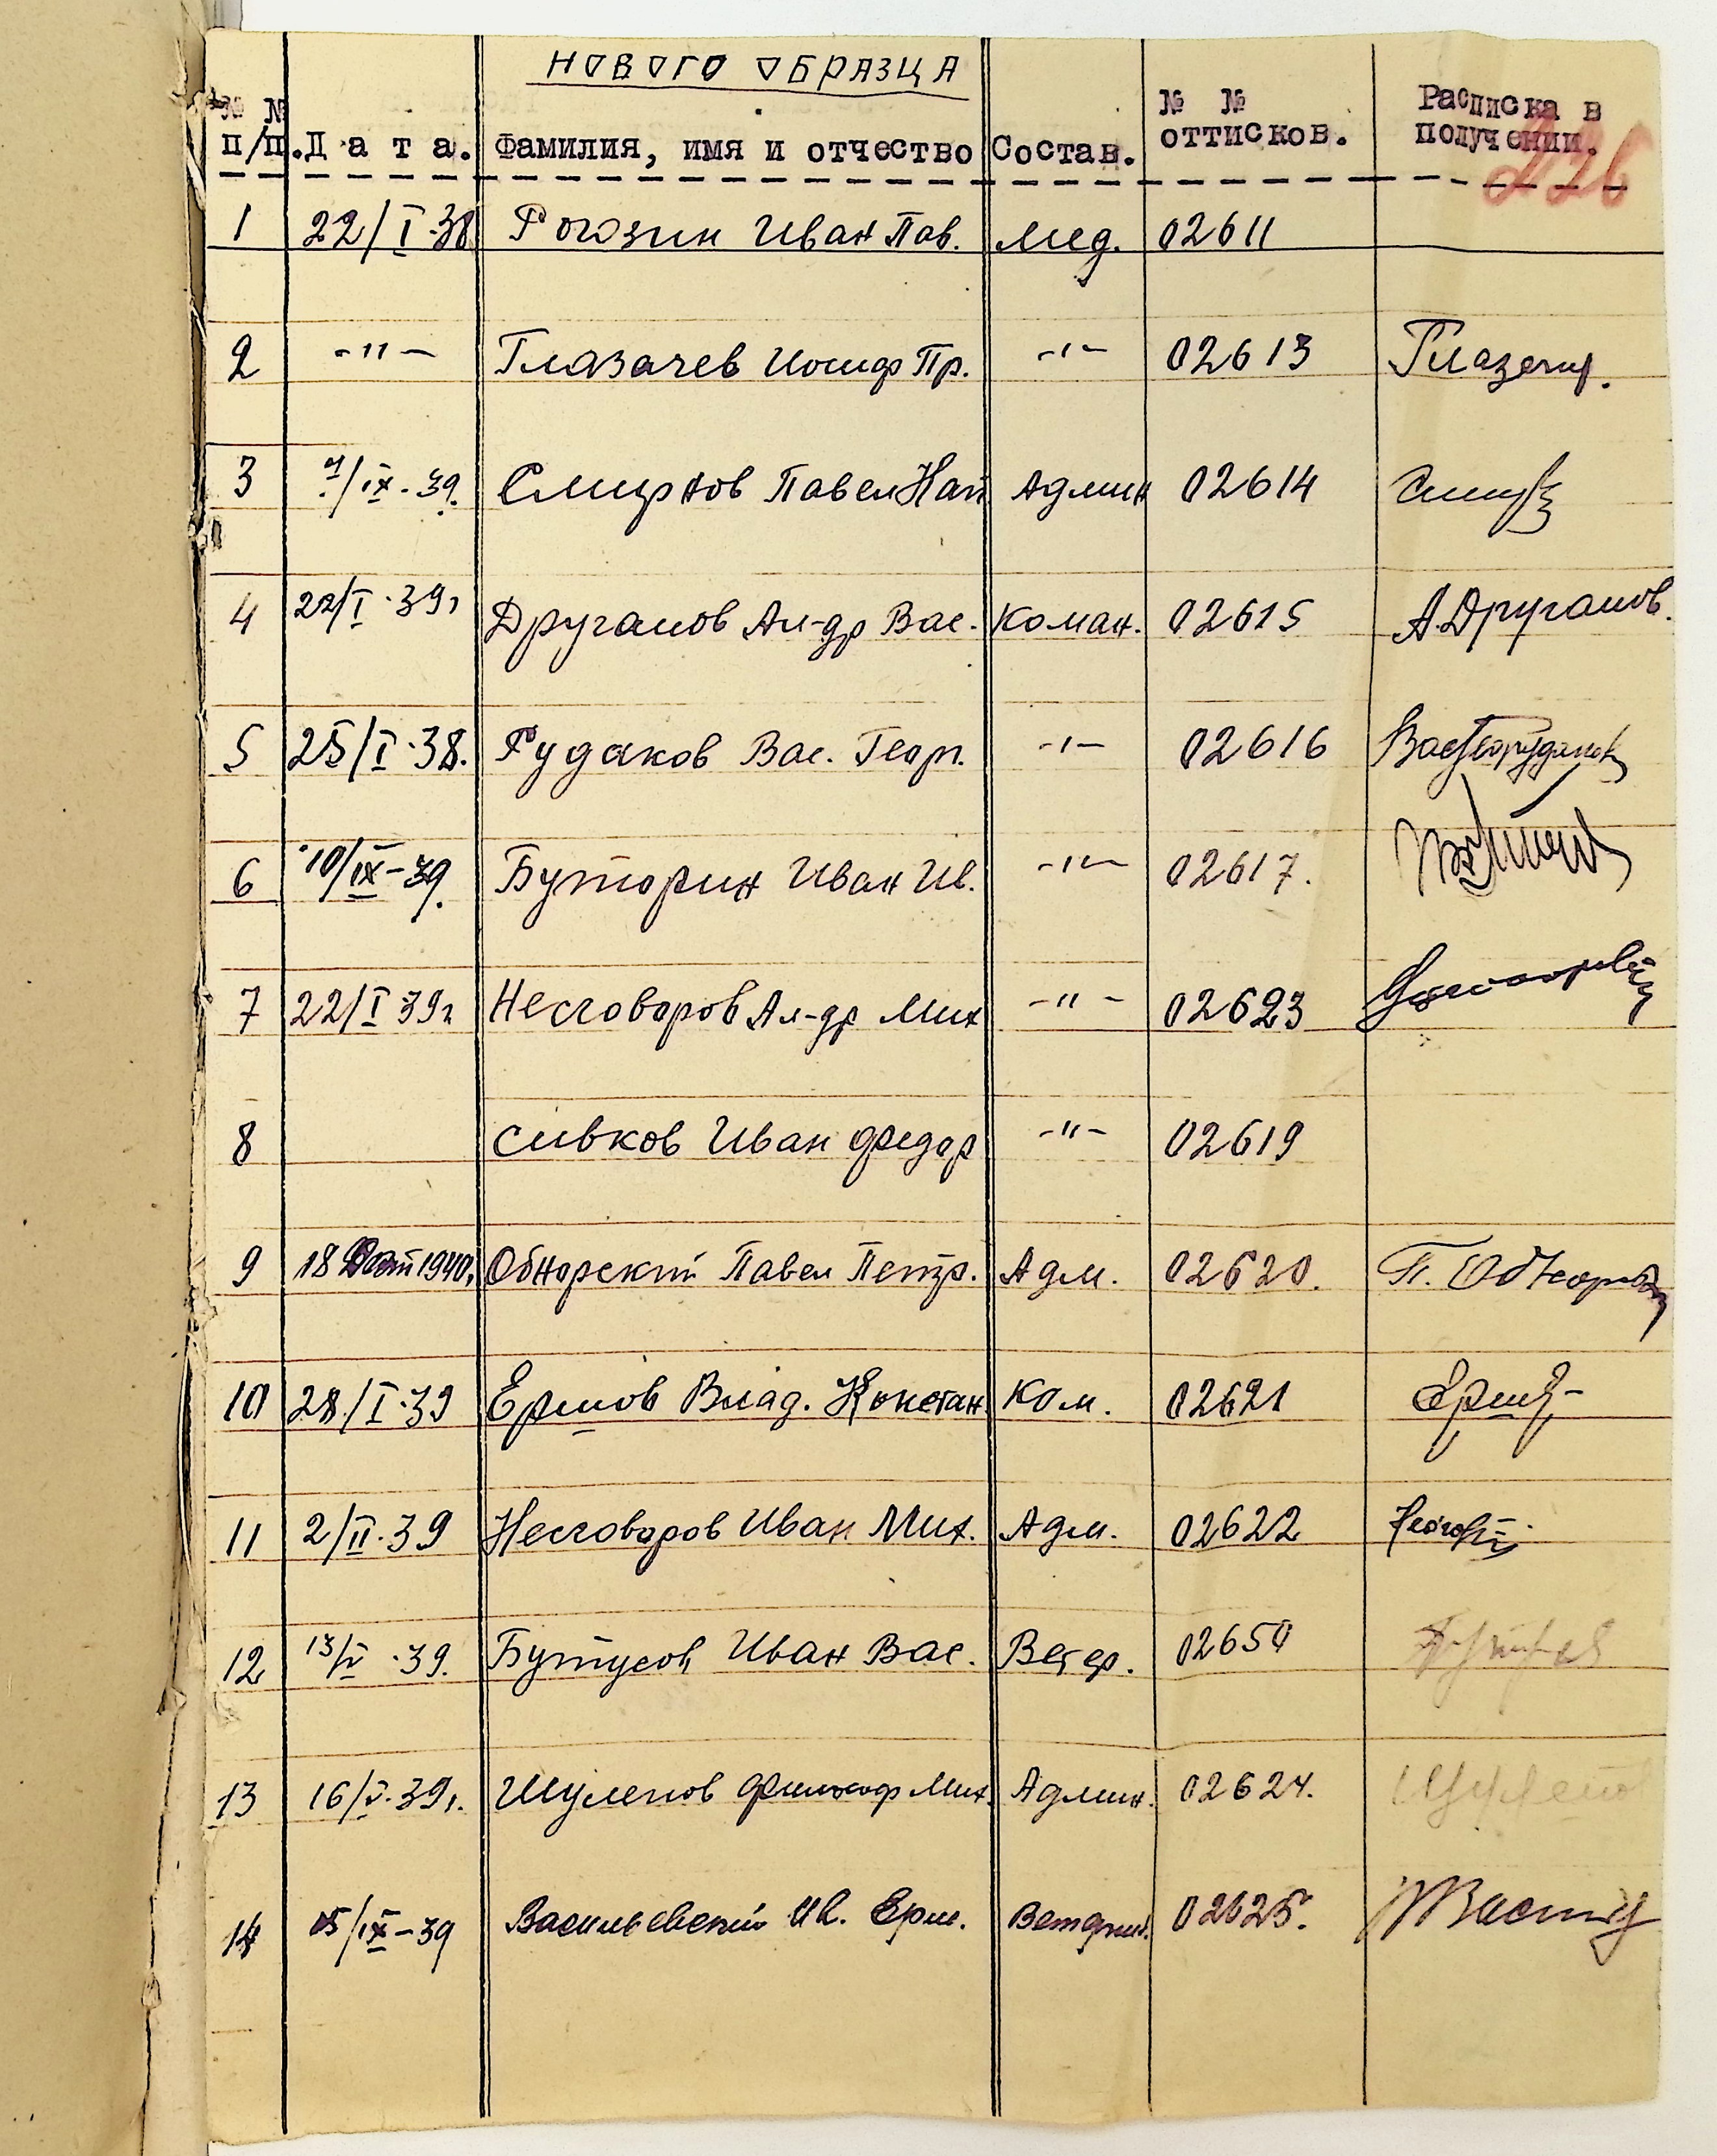 НОВОГО ОБРАЗЦА
№ № п/п. Дата. Фамилия, имя и отчество Состав. № № оттисков. Расписка в получении.
226
1 22/I-38 Рогозин Иван Пав. Мед. 02611
2 -"- Глазачев Иосиф Пр. -"- 02613 Глазач.
3 7/IX-39. Смирнов Павел Админ 02614
4 22/I-39г Друганов Ал-др Вас. Коман. 02615 А.Друганов.
5 25/I-38. Рудаков Вас. Геор. -"- 02616 ВасГеорРудаков
6 10/IX-39. Буторин Иван Ив. -"- 02617.
7 22/I 39г Несговоров Ал-др Мих -"- 02623
8 Сивков Иван Федор -"- 02619
9 18 1940г. Обнорский Павел Петр. Адм. 02620. П. Обнорск
10 28/I-39 Ершов Влад. Констан. Ком. 02621 Ерш
11 2/II-39 Несговоров Иван Мих. Адм. 02622
12 13/V-39. Бутусов Иван Вас. Ветер. 02650
13 16/V-39г. Шулепов Философ Мих. Админ. 02624. Шулепов
14 15/IX-39 Васильевский Ив. Ерм. Ветерин. 02625.